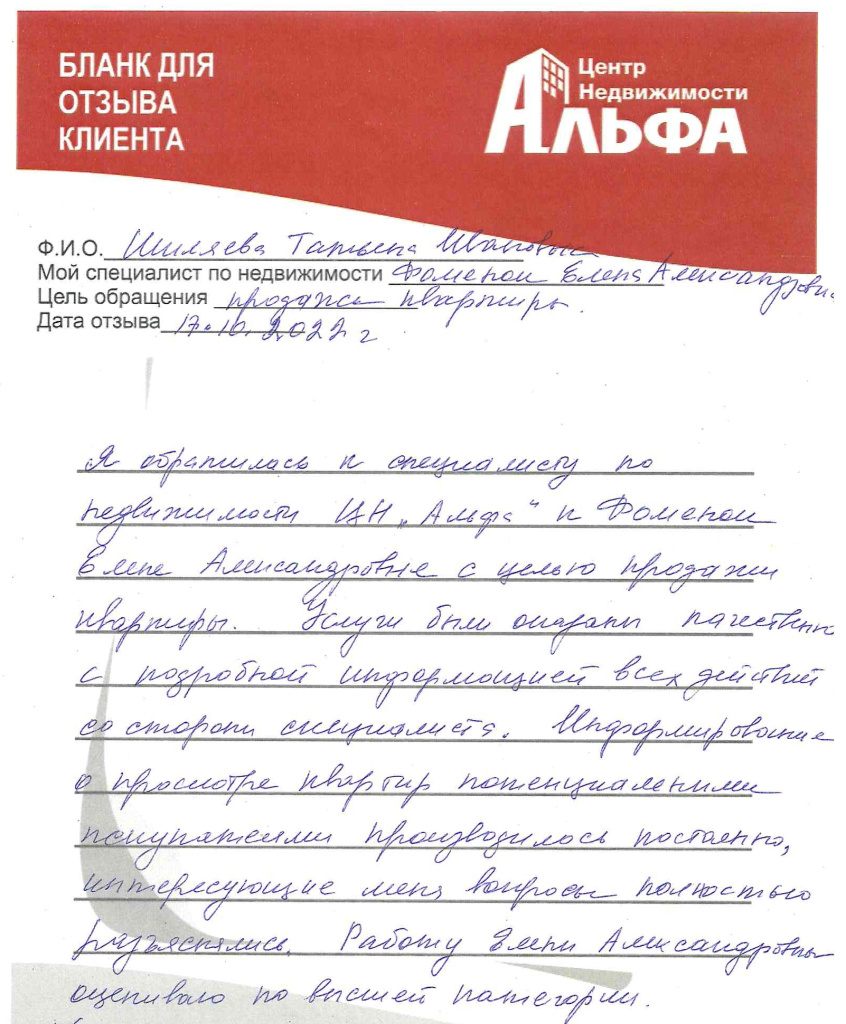 БЛАНК ДЛЯ
ОТЗЫВА
КЛИЕНТА
Центр
Недвижимости
АЛЬФА
Ф.И.О. Шиляева Татьяна Ивановна
Мой специалист по недвижимости Фоменой Елена Александровн
Цель обращения продажа квартиры.
Дата отзыва 17.10.2022 г
Я обратилась к специалисту по
недвижимости ЦН „Альфа“ к Фоменой
Елене Александровне с целью продажи
квартиры. Услуги были оказаны качественно
с подробной информацией всех действий
со стороны специалиста. Информирование
о просмотре квартир потенциальными
покупателями производилось постоянно,
интересующие меня вопросы полностью
разъяснялись. Работу Елены Александровны
оцениваю по высшей категории.